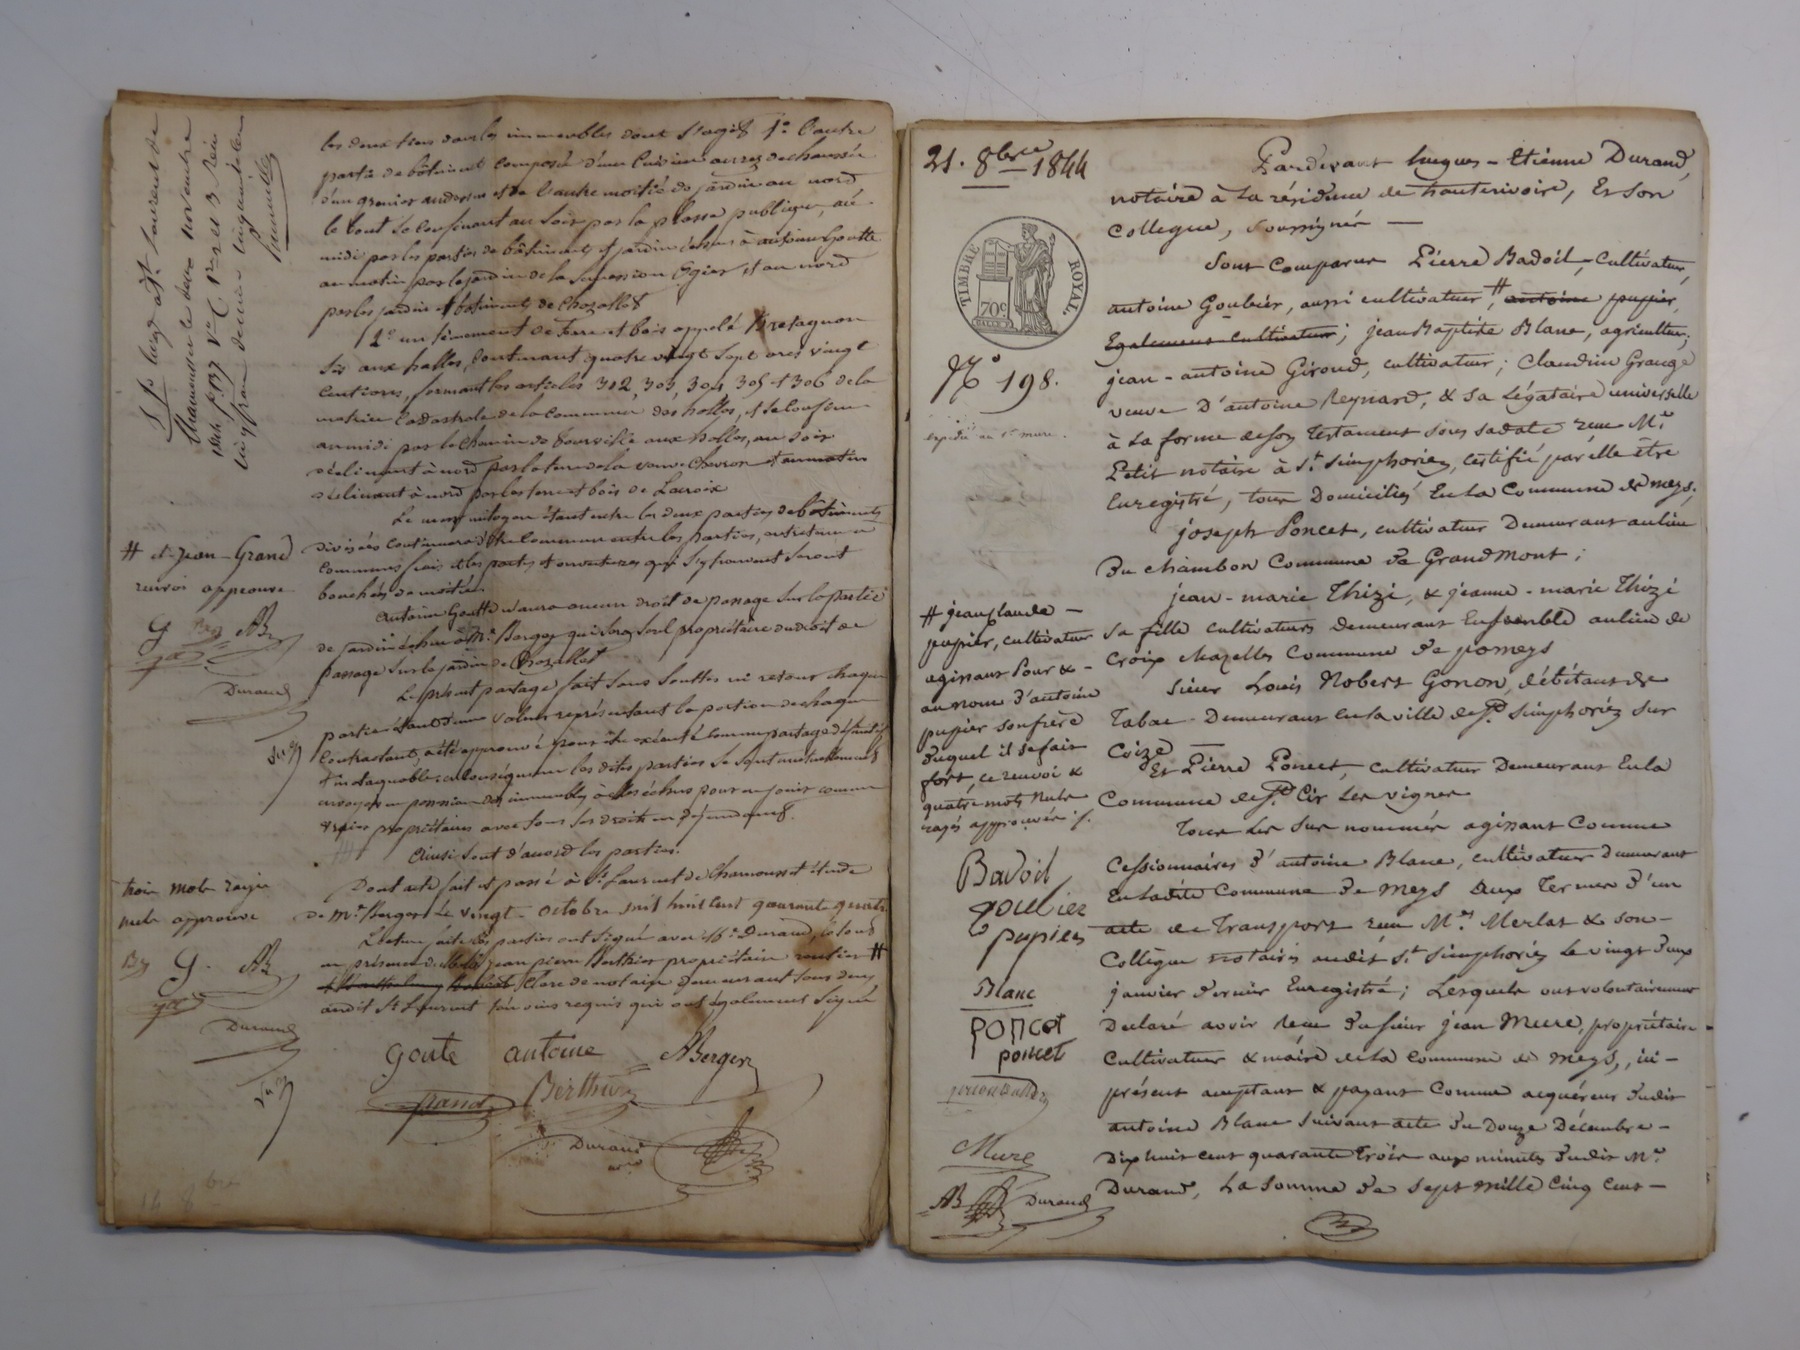 les deux tiers dans les immeubles dont s'agit 1º l'autre
partie de bâtiment composée d'une cuisine au rez de chaussée
d'un grenier au dessus et de l'autre moitié du jardin au nord
le tout se confinant au soir par la place publique, au
midi par les parties de bâtiment et jardin échus à antoine Goutte
au matin par le jardin de la succession Ogier, et au nord
par les jardin et bâtiments de Chozallet
2º un tènement de terre et bois appelé Bretagnon
sis aux halles, contenant quatre vingt sept ares vingt
centiares, formant les articles 302, 303, 304, 305 et 306 de la
matrice cadastrale de la commune des halles, et se confine
au midi par le chemin de fourville aux halles, au soir
déclinant à nord par la terre de la veuve Chevron et au matin
déclinant à nord par les terre et bois de Lacroix
Le mur mitoyen étant entre les deux parties de bâtiments
divisées continuera d'être commun entre les parties, entretenu à
communs frais et les portes et ouvertures qui s'y trouvent seront
bouchées de moitié
Antoine Goutte n'aura aucun droit de passage sur la partie
de jardin échue à Mr Berger qui sera seul propriétaire du droit de
passage sur le jardin de Chozallet
Le présent partage fait sans soultes ni retour chaque
partie étant d'une valeur représentant la portion de chaque
contractant, a été approuvé pour être exécuté comme partage définitif
et inattaquable, en conséquence les dites parties se sont mutuellement
envoyées en possession des immeubles à elles échus pour en jouir comme
vraies propriétaires avec tous les droits en dépendants.
Ainsi sont d'accord les parties.
Dont acte fait et passé à St Laurent de Chamousset étude
de Mr Berger Le vingt octobre mil huit cent quarante quatre
Lecture faite les parties ont signé avec Mr Durand, le tout
en présence de jean pierre Berthier propriétaire rentier #
clerc de notaire demeurant tous deux
audit St Laurent témoins requis qui ont également signé
# et Jean Grand
renvoi approuvé
G
AB
Durand
trois mots rayés
nuls approuvé
G. AB
Durand
goute antoine ABerger
grand Berthier
Durand
nre
21. 8bre 1844
TIMBRE ROYAL
70c
Nº 198.
Pardevant hugues-Etienne Durand,
notaire à la résidence de hauterivoir, Et son
collegue, soussignés —
Sont Comparus Pierre Badoil, Cultivateur,
antoine Goubier, aussi cultivateur, # antoine pupier,
Egalement Cultivateur; jean Baptiste Blanc, agriculteur;
jean-antoine Giroud, cultivateur; Claudine Grange
veuve D'antoine Reynard, & sa Légataire universelle
à la forme de son Testament sous sa date reçu Mr
Petit notaire à St Simphorien, certifié par elle être
Enregistré, tous Domiciliés En la Commune de meys,
joseph Poncet, cultivateur Demeurant au lieu
Du chambon Commune de Grandmont;
jean-marie Thizi, & jeanne-marie Thizi
sa fille cultivateurs demeurant Ensemble au lieu de
Croix chazelles Commune de pomeys
Sieur Louis Robert Gonon, débitant de
Tabac Demeurant en la ville de St Simphorien sur
Coize —
Et Pierre Poncet, Cultivateur Demeurant En la
Commune de St Cir Les vignes
Tous Les sus nommés agissant Comme
Cessionnaires d'antoine Blanc, cultivateur Demeurant
En ladite Commune de Meys aux Termes d'un
acte de Transport reçu Mr Merlat & son
Collègue notaires audit St Simphorien Le vingt deux
janvier dernier Enregistré; Lesquels ont volontairement
Declaré avoir reçu du sieur jean Mure, propriétaire
Cultivateur & maire de la Commune de Meys, ici
présent acceptant & payant Comme acquéreur dudit
antoine Blanc suivant acte du Douze Décembre
Dix huit cent quarante Trois aux minutes dudit Mr
Durand, La somme de sept mille Cinq Cent
# jean claude
pupier, cultivateur
agissant Pour &
au nom d'antoine
pupier son frère
duquel il se fait
fort, ce renvoi &
quatre mots Nuls
rayés approuvés ./.
Badoil
goubier
pupier
Blanc
PONCET
poncet
Mure
AB Durand